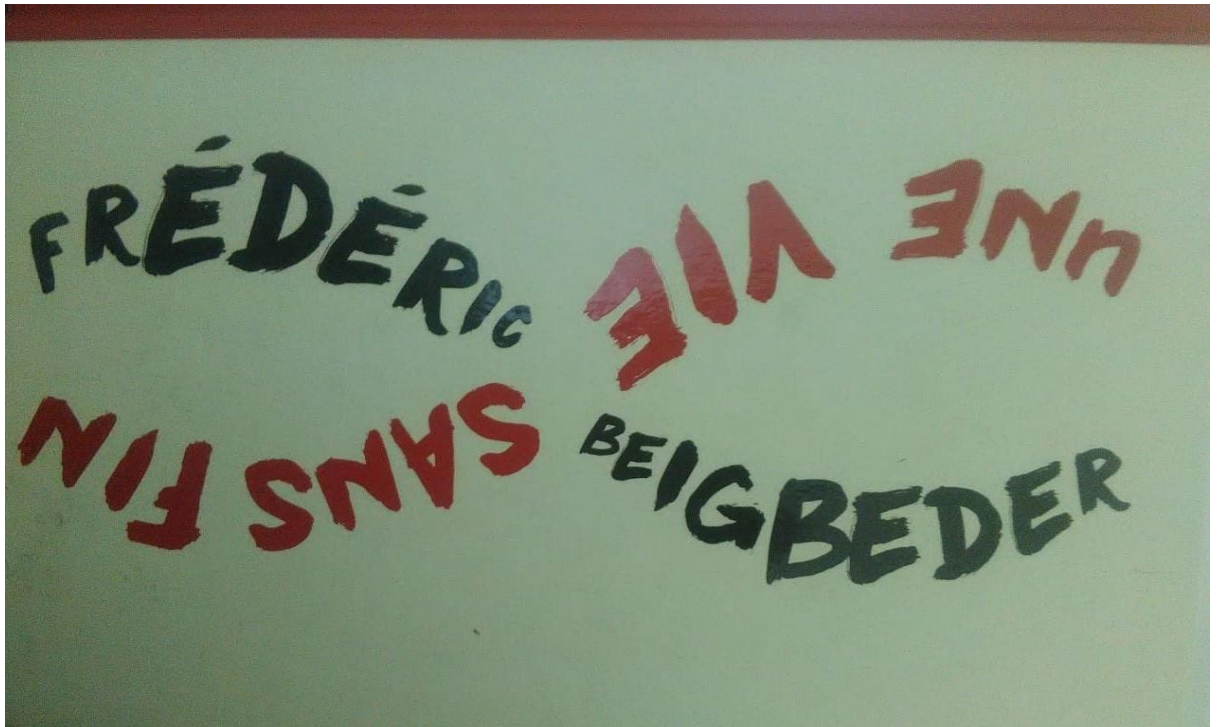 FRÉDÉRIC
BEIGBEDER
UNE VIE
SANS FIN